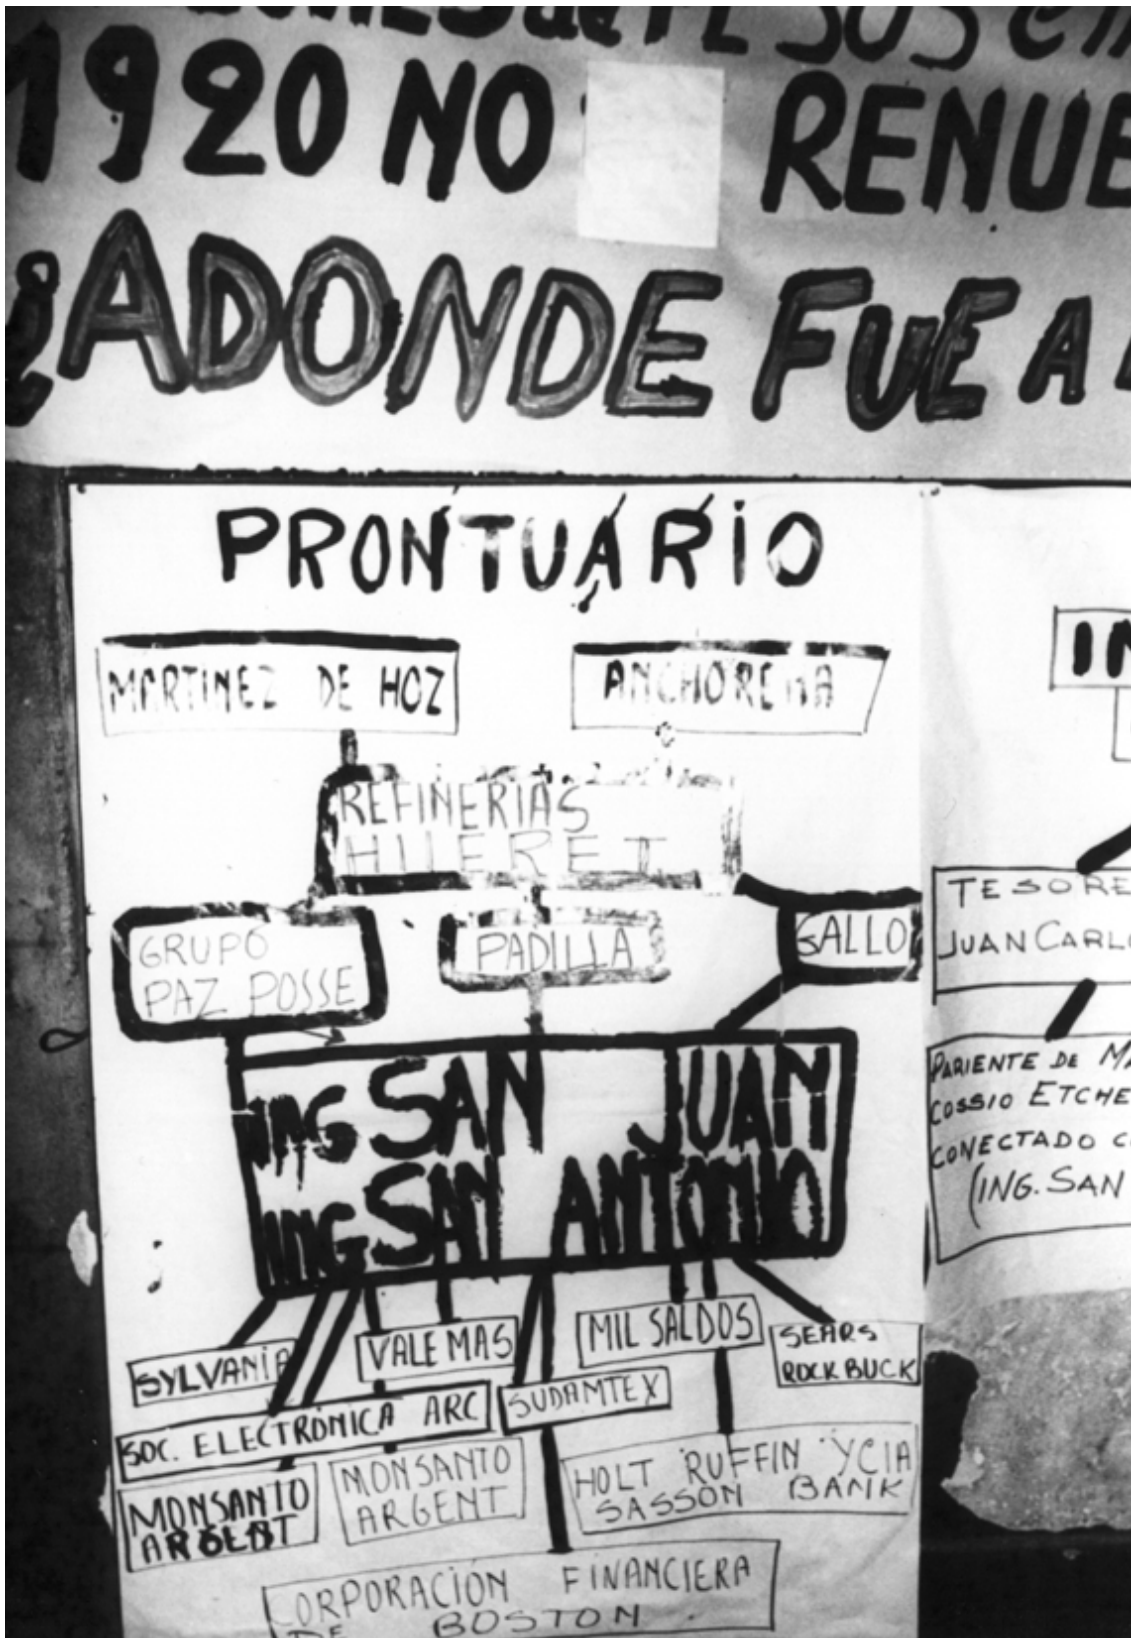 1920 NO RENUE
¿ADONDE FUE A
PRONTUARIO
MARTINEZ DE HOZ
ANCHORENA
REFINERIAS
HUERET
GRUPO
PAZ POSSE
PADILLA
GALLO
ING SAN JUAN
ING SAN ANTONIO
SYLVANIA
VALE MAS
MIL SALDOS
SEARS
ROCK BUCK
SOC. ELECTRÓNICA ARC
SUDAMTEX
MONSANTO
ARGENT
MONSANTO
ARGENT
HOLT RUFFIN Y CIA
SASSON BANK
CORPORACION FINANCIERA
DE BOSTON
IN
TESORE
JUAN CARLO
PARIENTE DE MA
COSSIO ETCHE
CONECTADO C
(ING. SAN